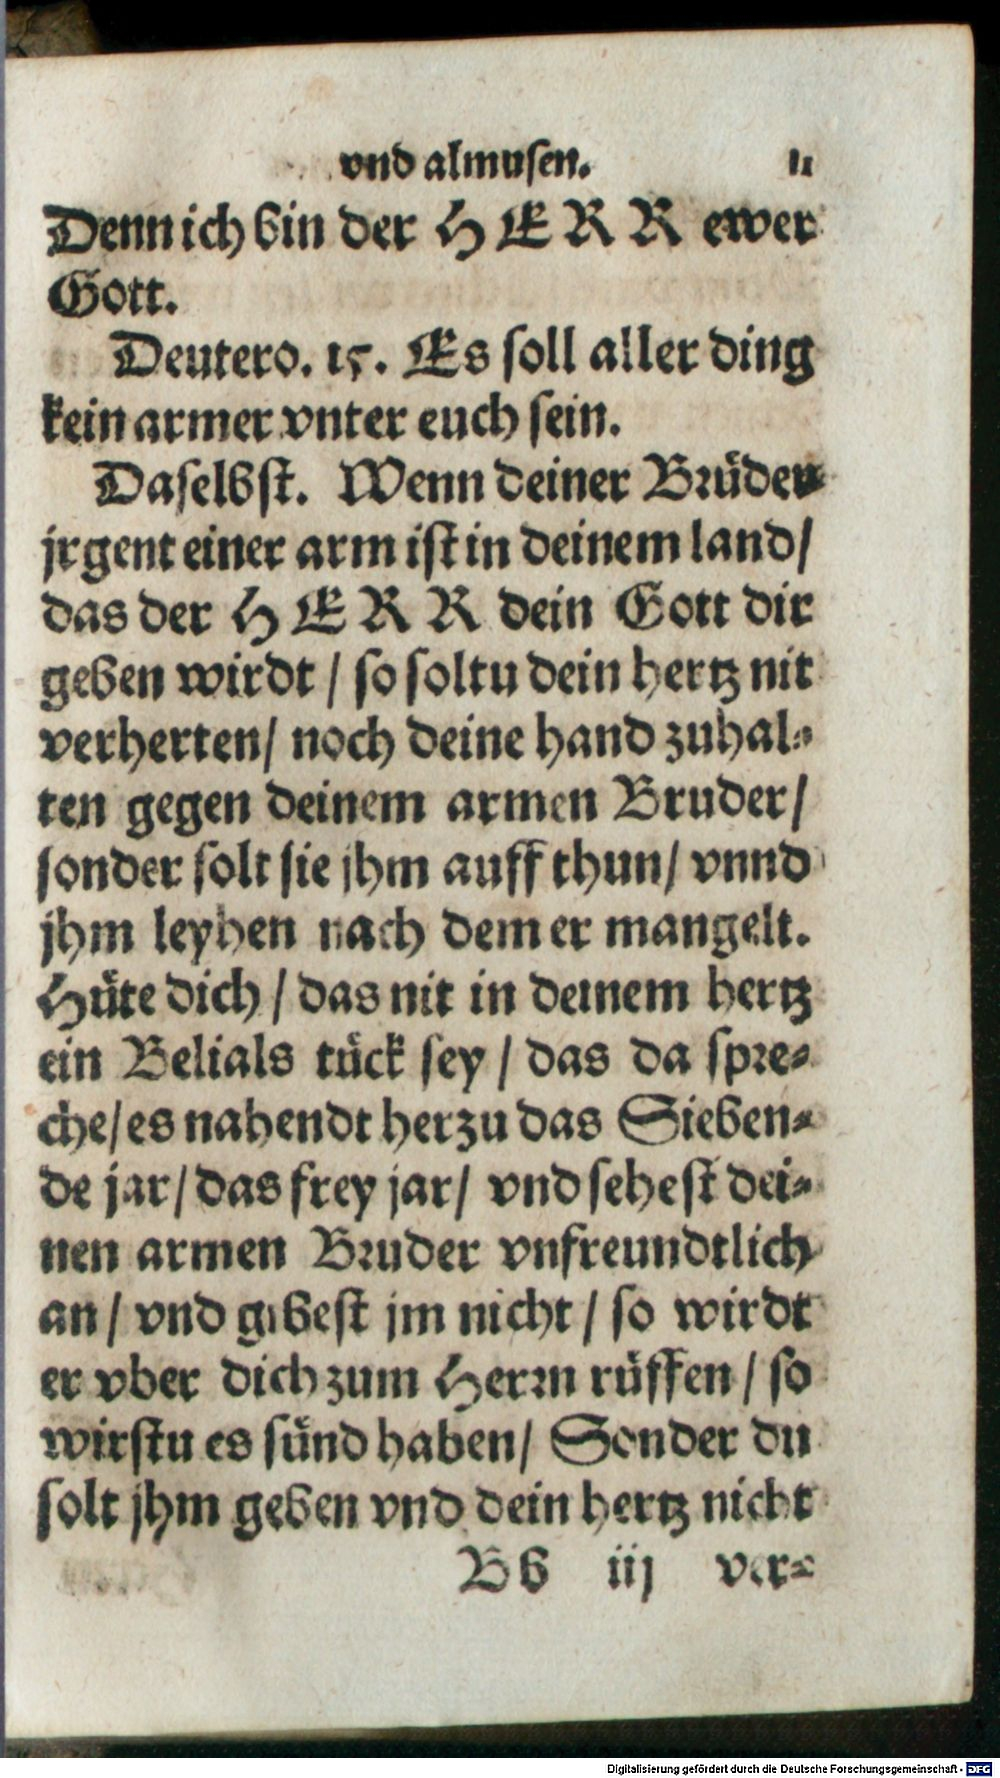 vnd almusen. 11
Denn ich bin der HERR ewer
Gott.
Deutero. 15. Es soll aller ding
kein armer vnter euch sein.
Daselbst. Wenn deiner Brüder
jrgent einer arm ist in deinem land/
das der HERR dein Gott dir
geben wirdt / so soltu dein hertz nit
verherten/ noch deine hand zuhal-
ten gegen deinem armen Bruder/
sonder solt sie jhm auff thun/ vnnd
jhm leyhen nach dem er mangelt.
Hüte dich / das nit in deinem hertz
ein Belials tück sey / das da spre-
che/ es nahendt herzu das Sieben-
de jar/ das frey jar/ vnd sehest dei-
nen armen Bruder vnfreundtlich
an / vnd gibest jm nicht / so wirdt
er vber dich zum Herrn rüffen / so
wirstu es sünd haben/ Sonder du
solt jhm geben vnd dein hertz nicht
Bb iij ver-
Digitalisierung gefördert durch die Deutsche Forschungsgemeinschaft - DFG